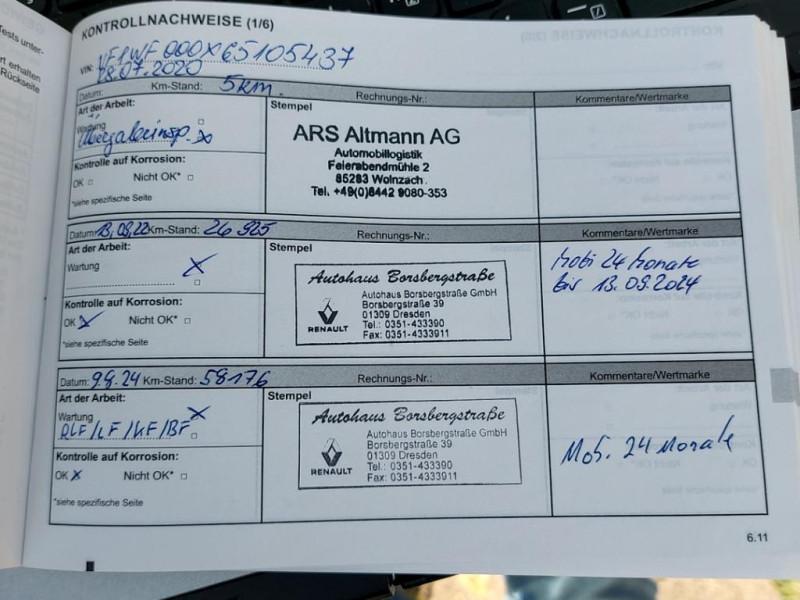 Tests unter-
rt erhalten
Rückseite
KONTROLLNACHWEISE (1/6)
VIN: VF1WF000X65105437
28.07.2020
Datum: Km-Stand: 5km. Rechnungs-Nr.: Kommentare/Wertmarke
Art der Arbeit: Stempel
Wartung
Übergabeinsp.
Kontrolle auf Korrosion:
OK □ Nicht OK* □
*siehe spezifische Seite
ARS Altmann AG
Automobillogistik
Feierabendmühle 2
85283 Wolnzach
Tel. +49(0)8442 9080-353
Datum: 13.09.22 Km-Stand: 26 925 Rechnungs-Nr.: Kommentare/Wertmarke
Art der Arbeit: Stempel
Wartung X
Kontrolle auf Korrosion:
OK X Nicht OK* □
*siehe spezifische Seite
Autohaus Borsbergstraße
Autohaus Borsbergstraße GmbH
Borsbergstraße 39
01309 Dresden
Tel.: 0351-433390
Fax: 0351-4333911
RENAULT
Mobi 24 Monate
bis 13.09.2024
Datum: 9.8.24 Km-Stand: 58176 Rechnungs-Nr.: Kommentare/Wertmarke
Art der Arbeit: Stempel
Wartung X
ÖLF/LF/KF/BF
Kontrolle auf Korrosion:
OK X Nicht OK* □
*siehe spezifische Seite
Autohaus Borsbergstraße
Autohaus Borsbergstraße GmbH
Borsbergstraße 39
01309 Dresden
Tel.: 0351-433390
Fax: 0351-4333911
RENAULT
Mob. 24 Monate
6.11